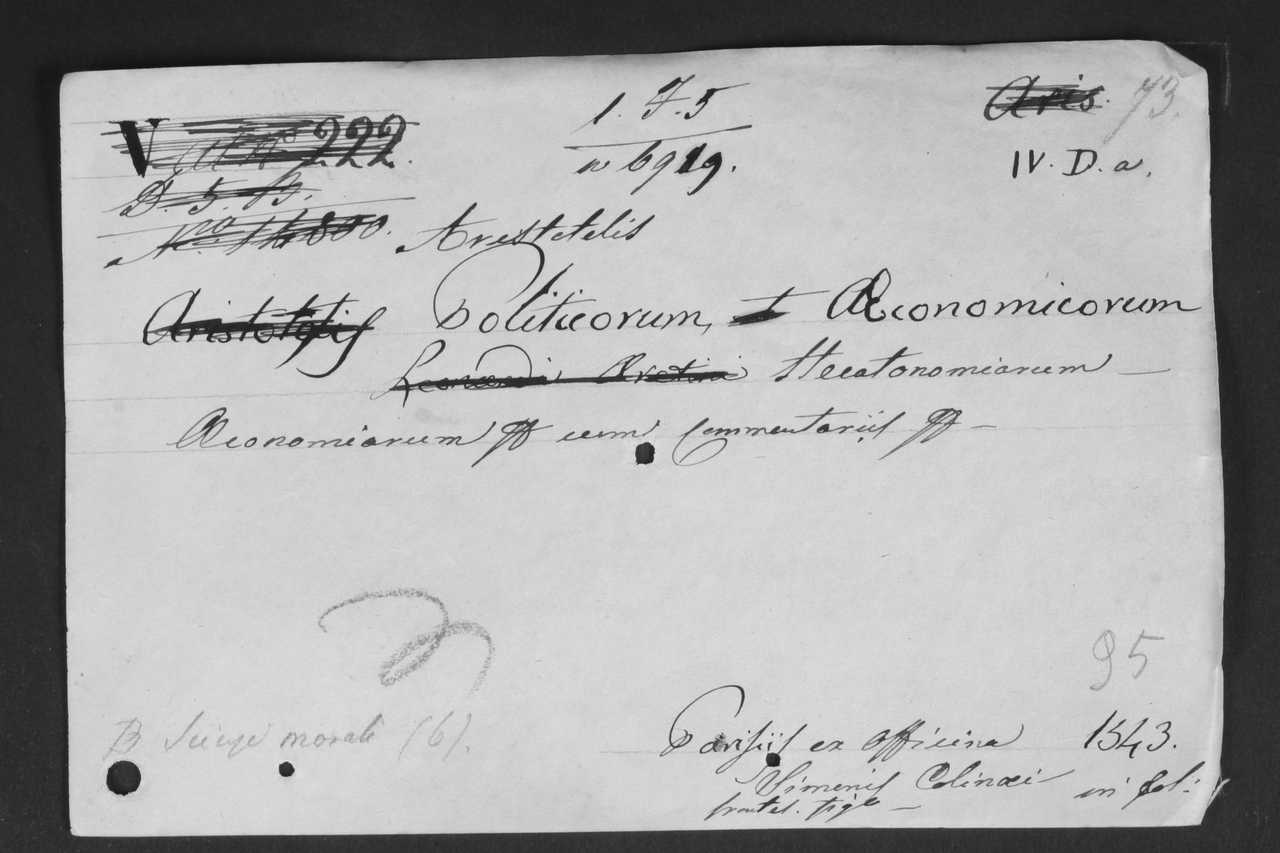 V 222.
D. 5. B.
No. 14800.
1. F. 5
n 6919.
Aris 73.
IV. D. a.
Aristotelis
Aristotelis Politicorum, et Œconomicorum
Leonardi Aretini Hecatonomiarum —
Œconomiarum cum Commentariis —
95
B morale (6).
Parisiis ex officina 1543.
Simonis Colinæi in fol: